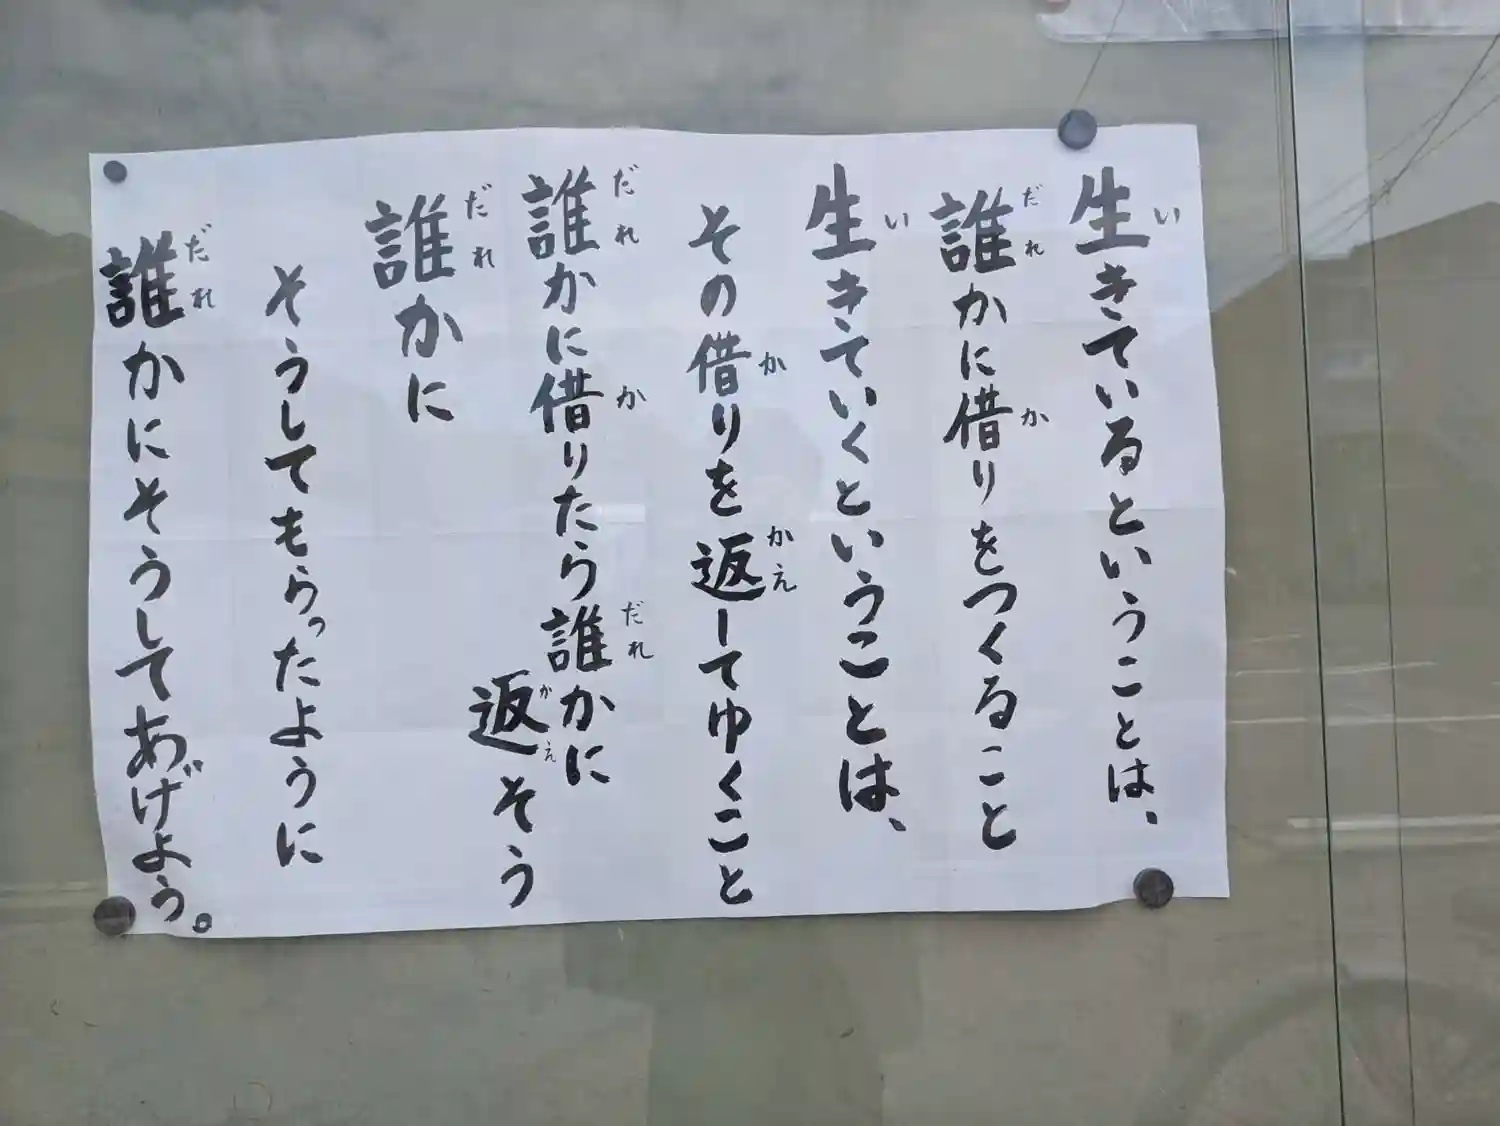 生きているということは、
誰かに借りをつくること
生きていくということは、
その借りを返してゆくこと
誰かに借りたら誰かに
返そう
誰かに
そうしてもらったように
誰かにそうしてあげよう。